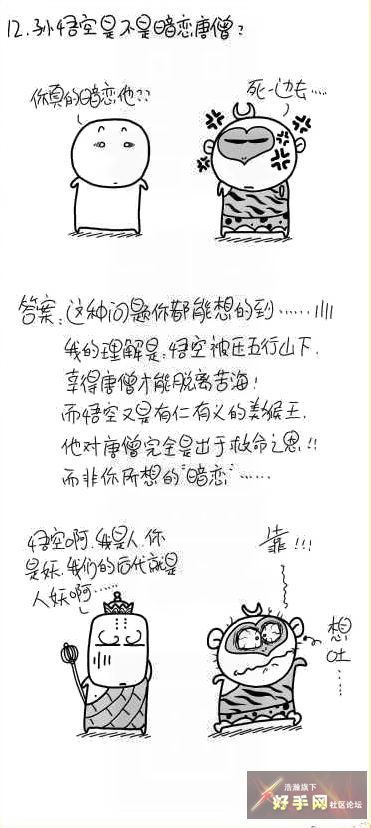 12.孙悟空是不是暗恋唐僧?
你真的暗恋他??
死一边去……
答案:这种问题你都能想的到……
我的理解是:悟空被压五行山下.
幸得唐僧才能脱离苦海!
而悟空又是有仁有义的美猴王.
他对唐僧完全是出于救命之恩!!
而非你所想的"暗恋"……
悟空啊.我是人.你
是妖.我们的后代就是
人妖啊……
靠!!!
想
吐
……
浩瀚旗下
好手网社区论坛